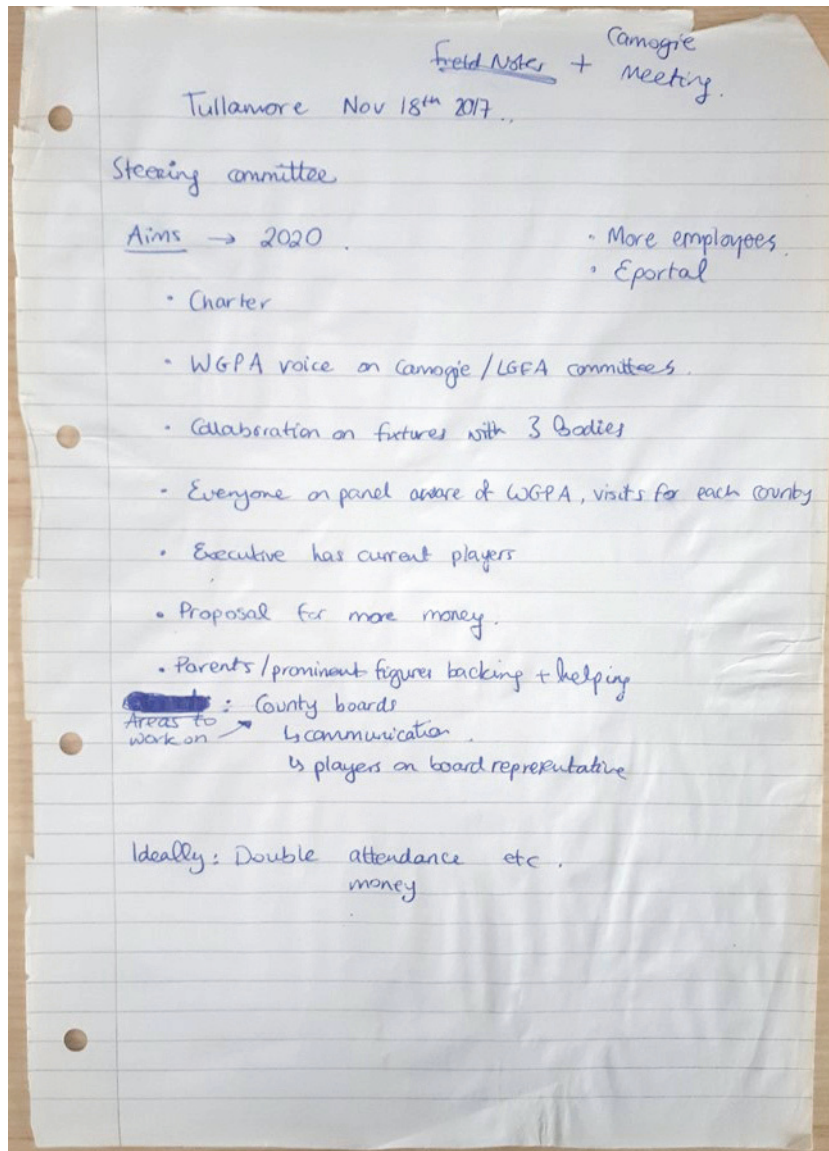 Field Notes + Camogie
Meeting.
Tullamore Nov 18th 2017..
Steering committee
Aims → 2020.
· More employees.
· Eportal
· Charter
· WGPA voice on Camogie / LGFA committees.
· Collaboration on fixtures with 3 Bodies
· Everyone on panel aware of WGPA, visits for each county
· Executive has current players
· Proposal for more money.
· Parents / prominent figures backing + helping
: County boards
Areas to
work on ↗ ↳ communication.
↳ players on board representative
Ideally : Double attendance etc.
money